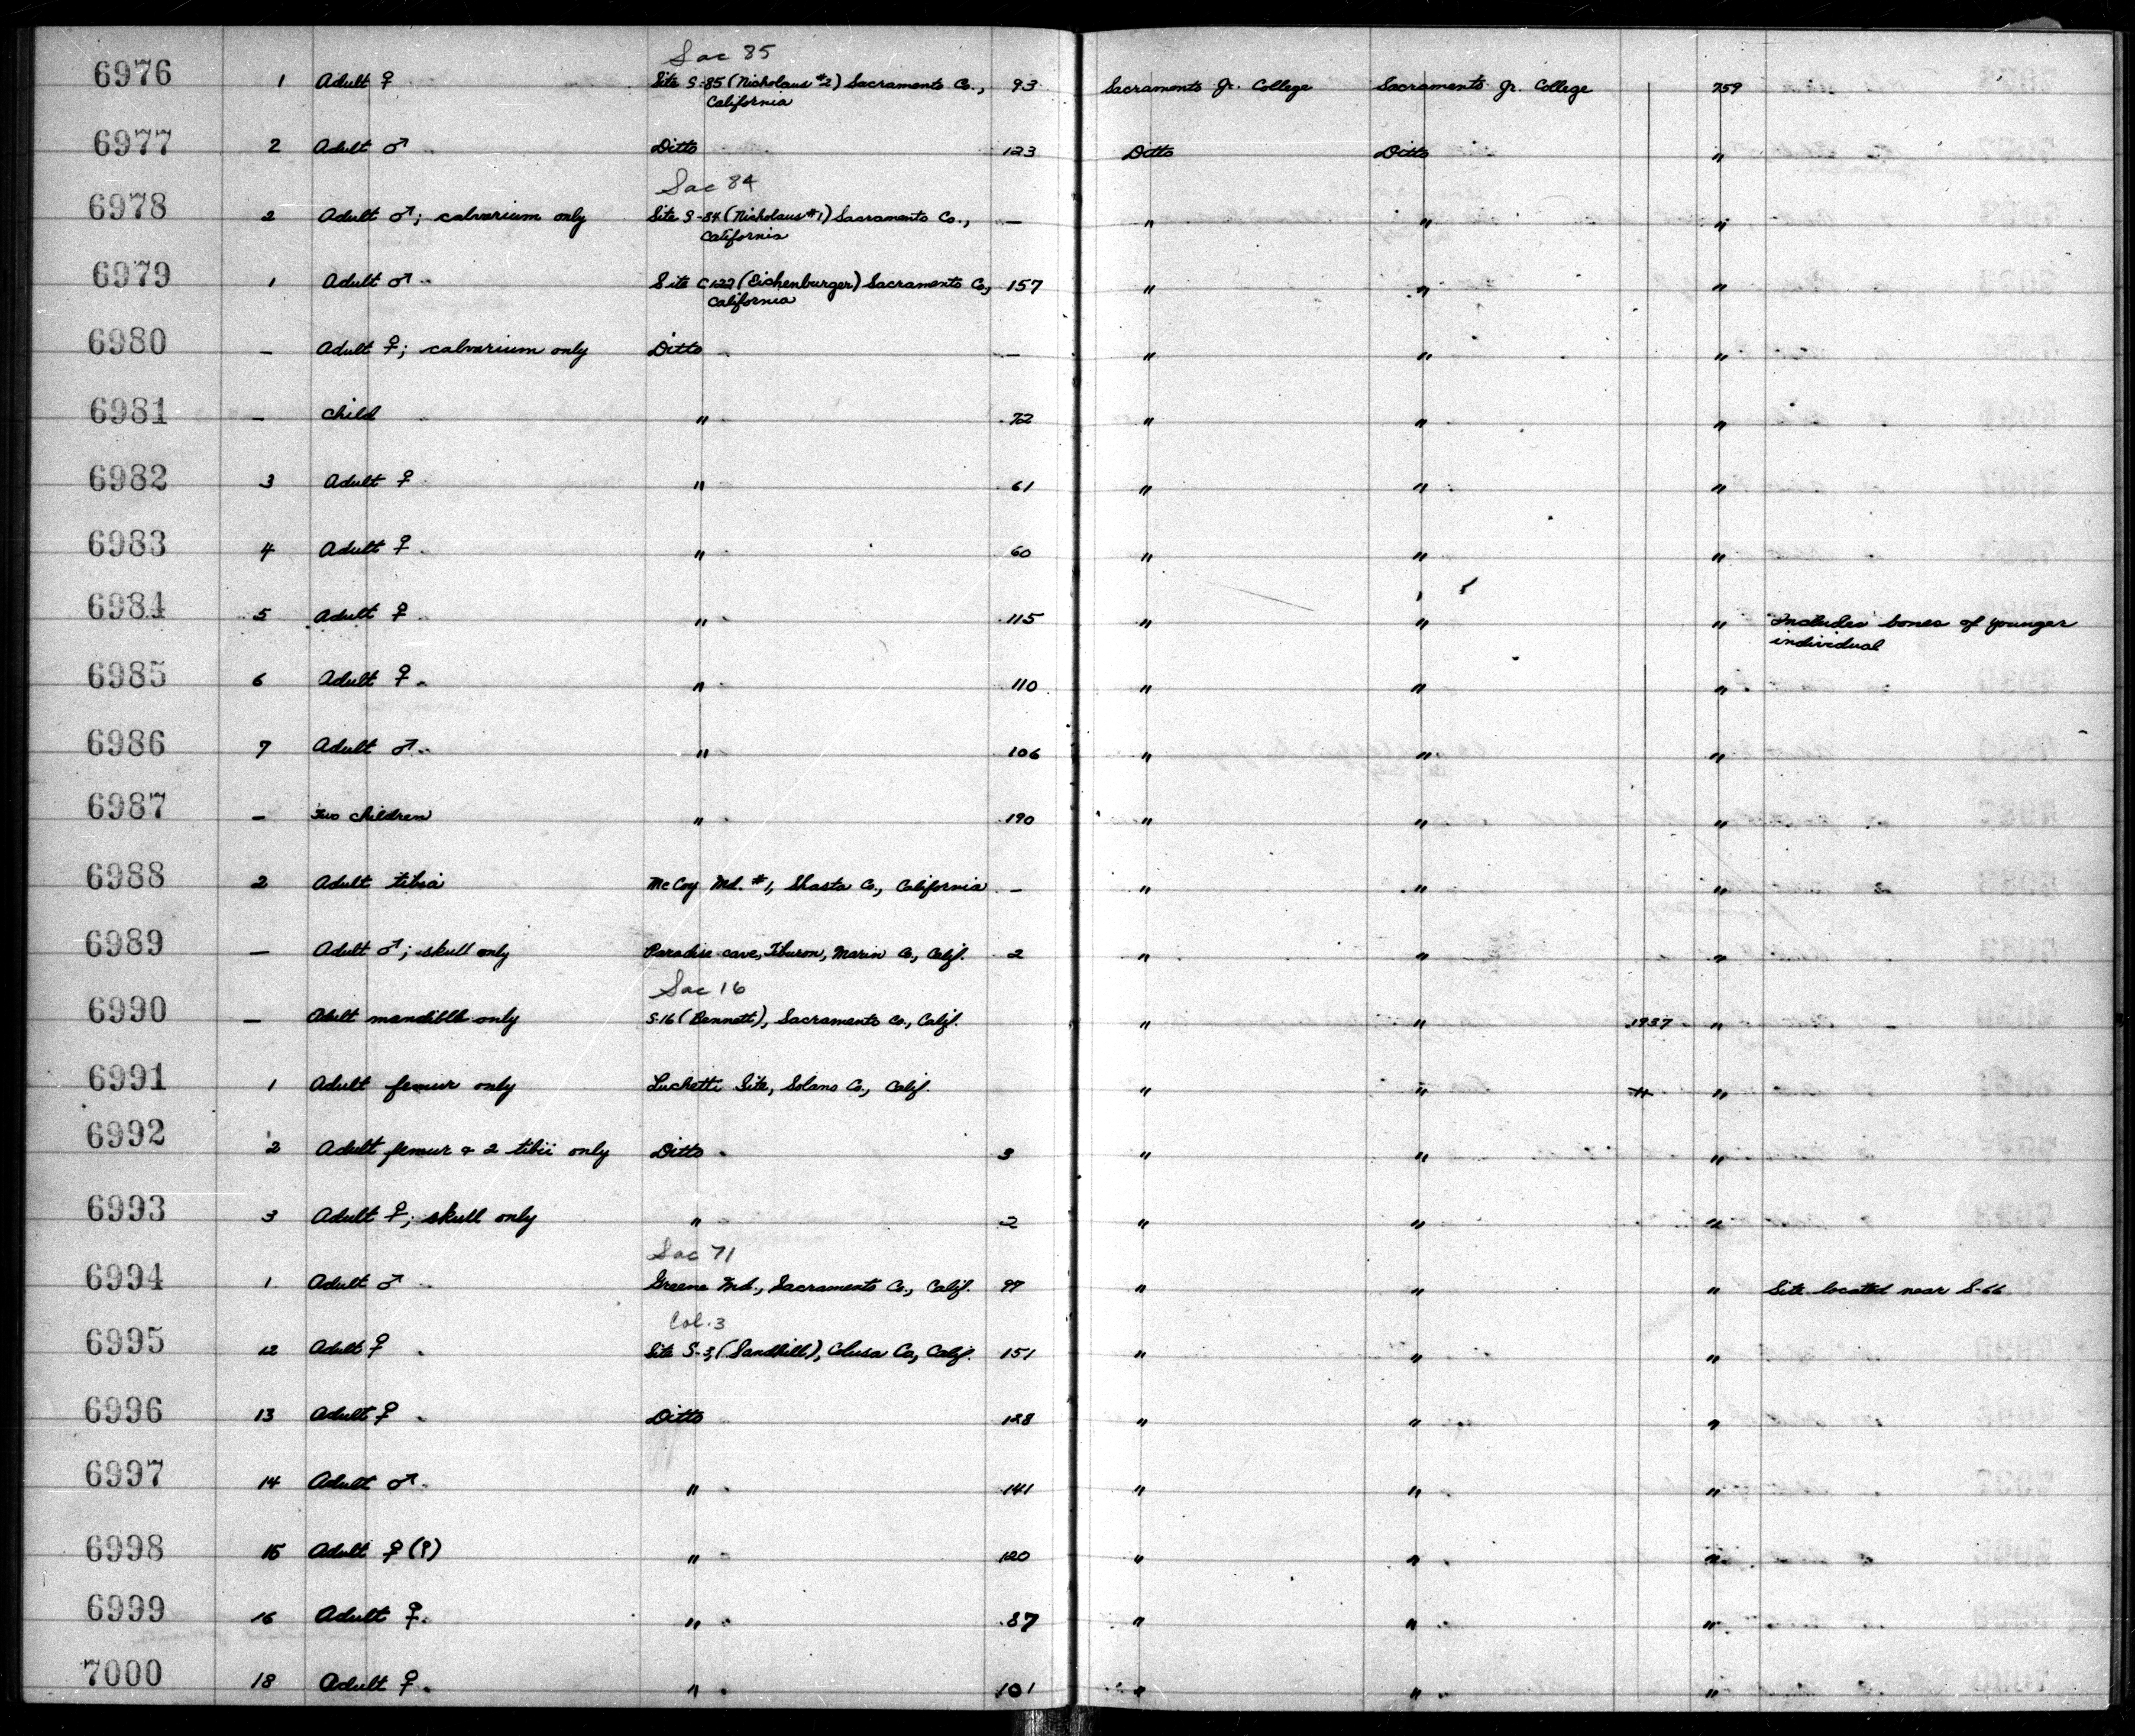 Sac 85
6976 1 Adult ♀ Site S-85 (Nicholaus #2) Sacramento Co., 93 Sacramento Jr. College Sacramento Jr. College 759
California
6977 2 Adult ♂ Ditto 123 Ditto Ditto "
Sac 84
6978 2 Adult ♂; calvarium only Site S-84 (Nicholaus #1) Sacramento Co., — " " "
California
6979 1 Adult ♂ Site C122 (Eichenburger) Sacramento Co., 157 " " "
California
6980 — Adult ♀; calvarium only Ditto — " " "
6981 — Child " 72 " " "
6982 3 Adult ♀ " 61 " " "
6983 4 Adult ♀ " 60 " " "
6984 5 Adult ♀ " 115 " " " Includes bones of younger
individual
6985 6 Adult ♀ " 110 " " "
6986 7 Adult ♂ " 106 " " "
6987 — Two children " 190 " " "
6988 2 Adult tibia McCoy Md. #1, Shasta Co., California — " " "
6989 — Adult ♂; skull only Paradise cave, Tiburon, Marin Co., Calif. 2 " " "
Sac 16
6990 — Adult mandible only S-16 (Bennett), Sacramento Co., Calif. " " 1937 "
6991 1 Adult femur only Luchetti Site, Solano Co., Calif. " " "
6992 2 Adult femur & 2 tibii only Ditto 3 " " "
6993 3 Adult ♀; skull only " 2 " " "
Sac 71
6994 1 Adult ♂ Greene Md., Sacramento Co., Calif. 97 " " " Site located near S-66
Col. 3
6995 12 Adult ♀ Site S-3, (Sandhill), Colusa Co., Calif. 151 " " "
6996 13 Adult ♀ Ditto 128 " " "
6997 14 Adult ♂ " 141 " " "
6998 15 Adult ♀ (?) " 120 " " "
6999 16 Adult ♀ " 87 " " "
7000 18 Adult ♀ " 101 " " "